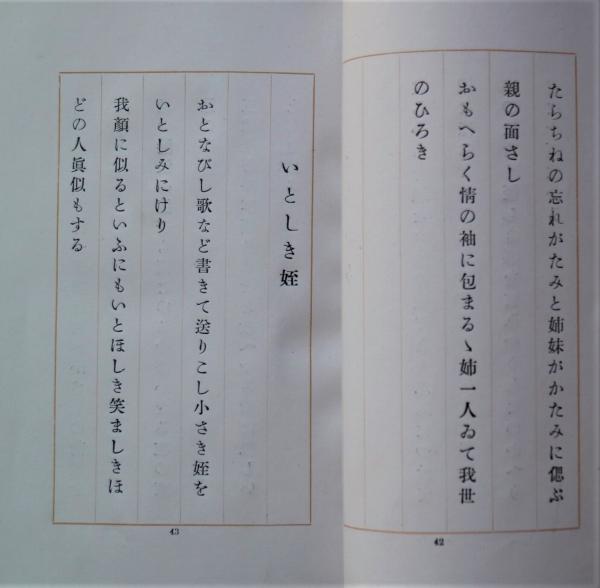 たらちねの忘れがたみと姉妹がかたみに偲ぶ
親の面さし
おもへらく情の袖に包まるゝ姉一人ゐて我世
のひろき
42
いとしき姪
おとなびし歌など書きて送りこし小さき姪を
いとしみにけり
我顔に似るといふにもいとほしき笑ましきほ
どの人眞似もする
43